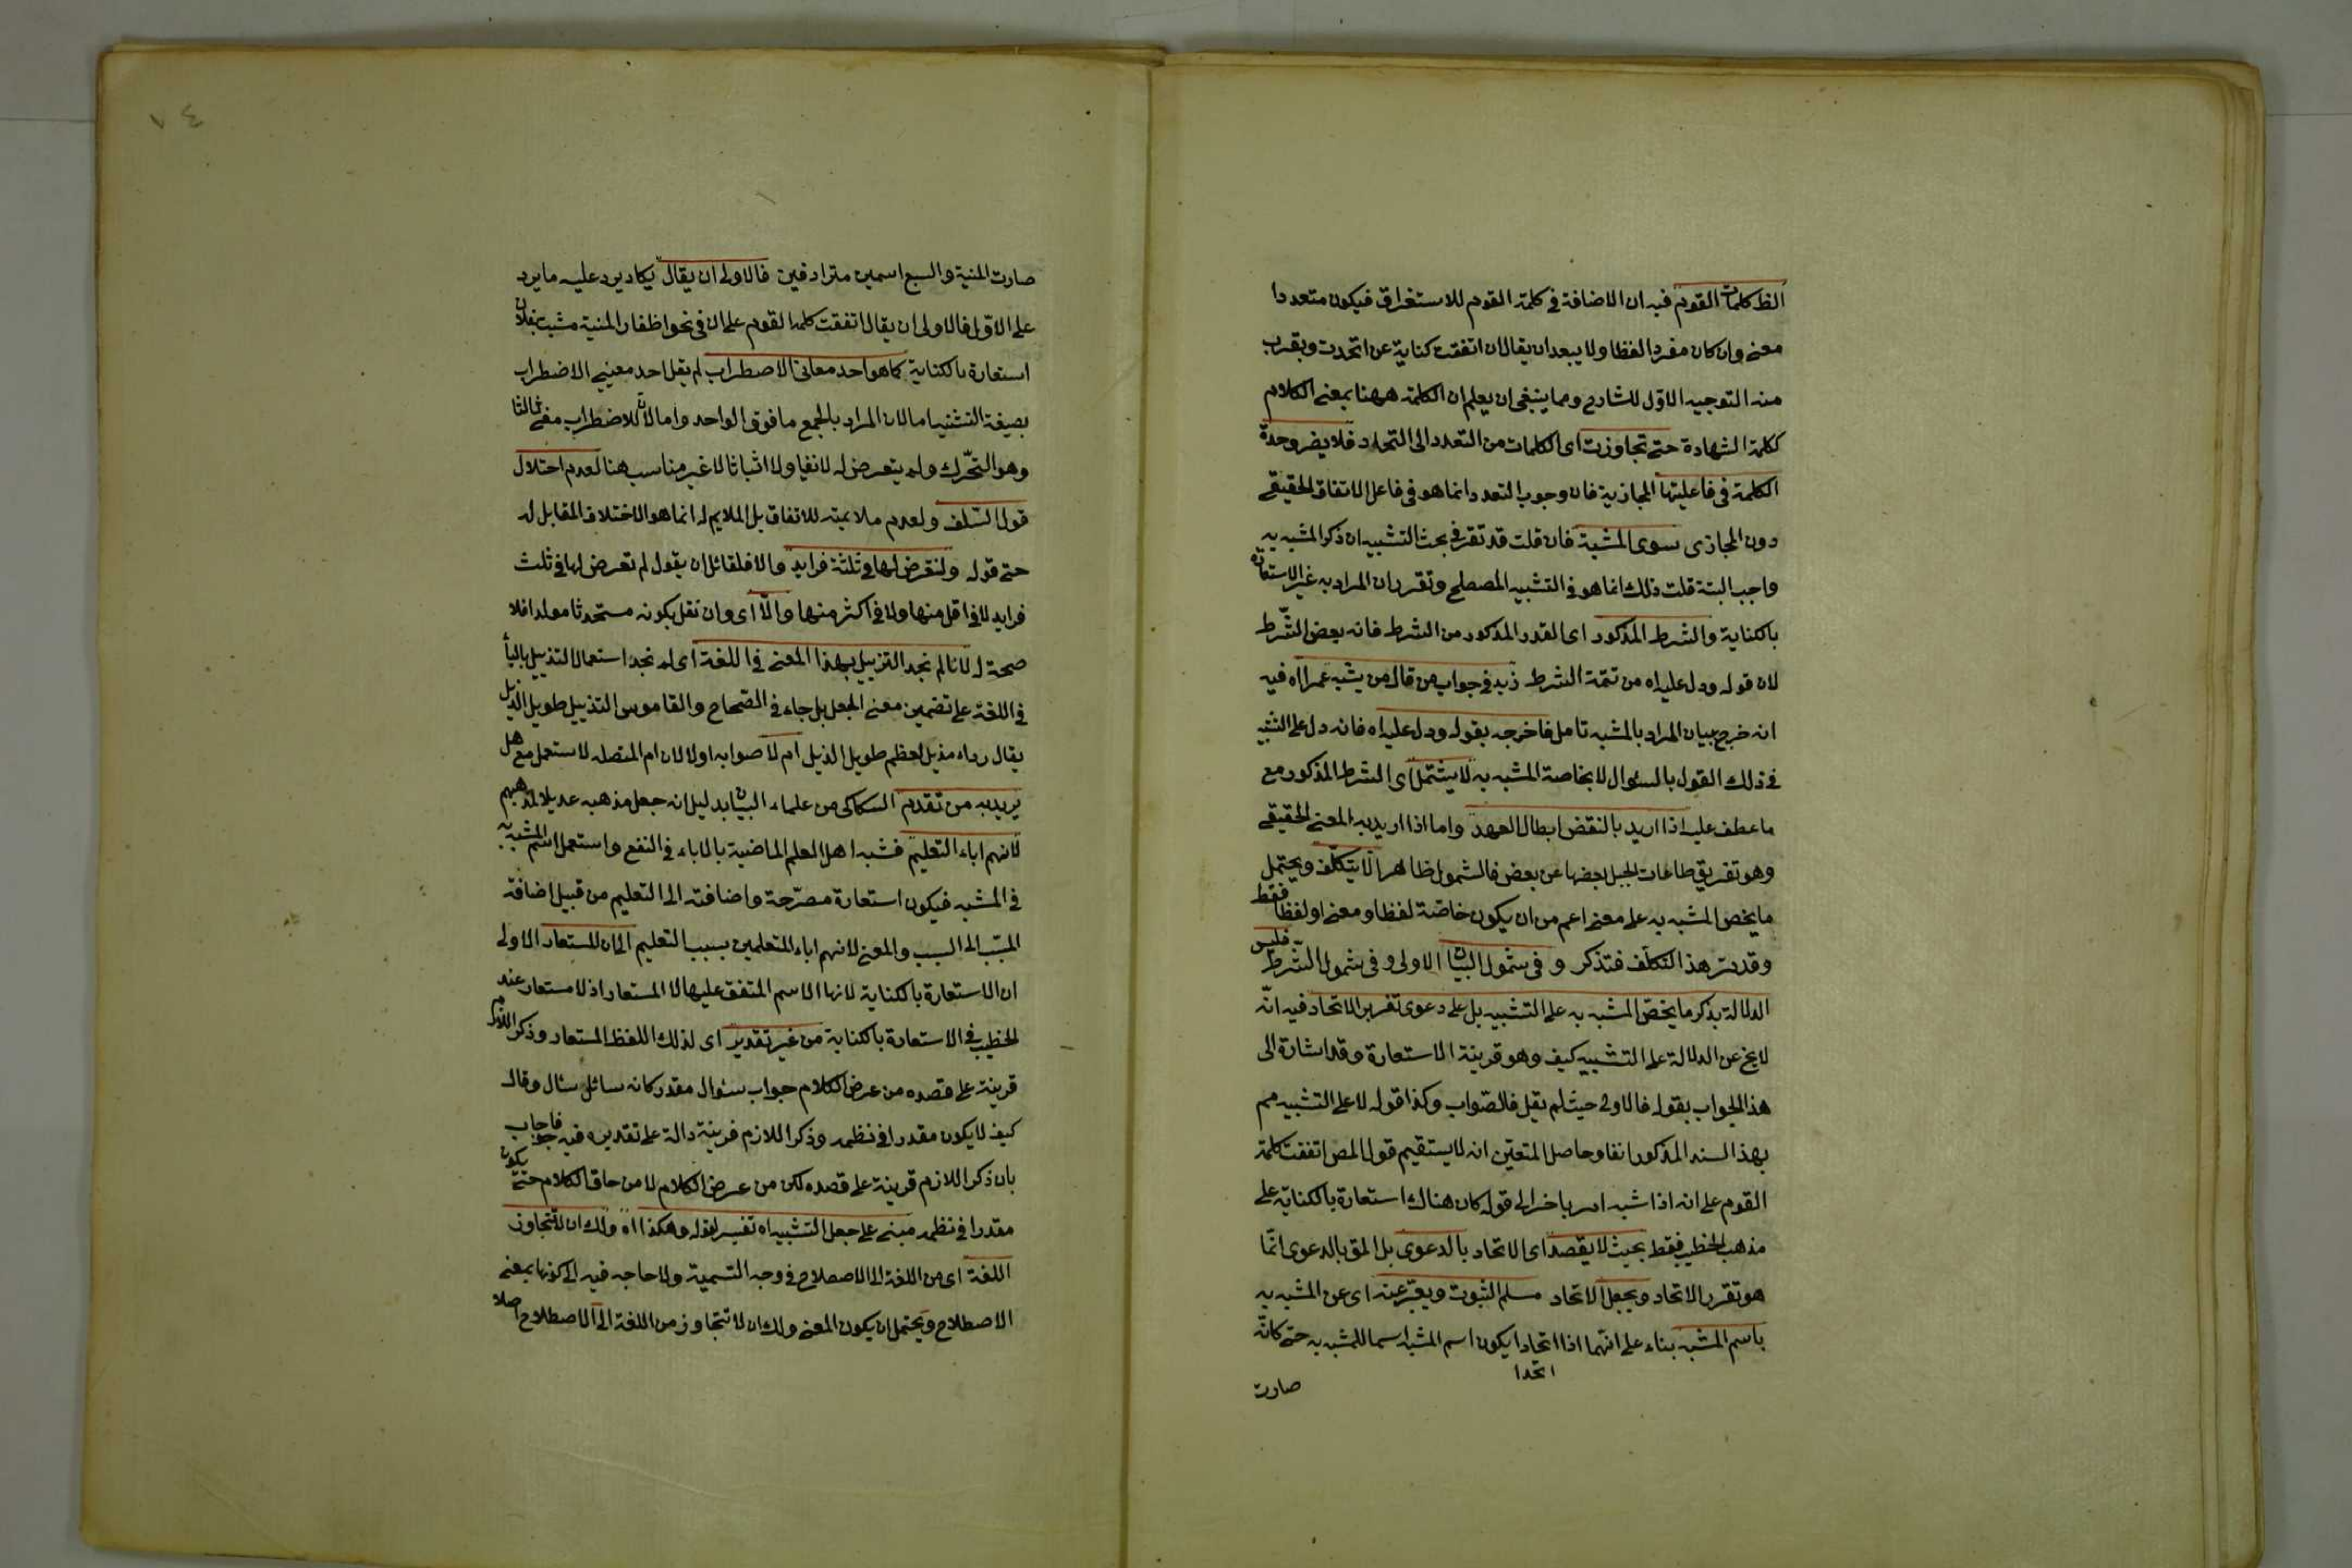 الظ كلمات القوم فيه ان الاضافة في كلمة القوم للاستغراق فيكون متعددا
معنى وان كان مفردا لفظا ولا يبعد ان يقال ان اتفقت كناية عن اتحدت ويقرب
منه التوجيه الاول للشارح ومما ينبغي ان يعلم ان الكلمة ههنا بمعنى الكلام
ككلمة الشهادة حتى تجاوزت اى الكلمات من التعدد الى التحدد فلا يضر وحدة
الكلمة في فاعليتها المجازية فان وجوب التعدد انما هو في فاعل الاتفاق الحقيقي
دون المجازى سوى المشبه فان قلت قد تقرر في بحث التشبيه ان ذكر المشبه به
واجب البتة قلت ذلك انما هو في التشبيه المصطلح وتقرر ان المراد به غير الاستعارة
بالكناية والشرط المذكور اى القدر المذكور من الشرط فانه بعض الشرط
لان قوله ودل عليه اه من تتمة الشرط زيد في جواب من قال من يشبه عمرا اه فيه
انه خرج ببيان المراد بالمشبه تامل فاخرجه بقوله ودل عليه اه فانه دل على التشبيه
في ذلك القول بالسئوال لا بخاصة المشبه به لا يشتمل اى الشرط المذكور مع
ما عطف عليه اذا اريد بالنقض ابطال العهد واما اذا اريد به المعنى الحقيقي
وهو تفريق طاعات الحبل بعضها عن بعض فالشمول ظاهر الا بتكلف ويحتمل
ما يخص المشبه به على معنى اعم من ان يكون خاصة لفظا ومعنى او لفظا فقط
وقد مر هذا التكلف فتذكر و في شمول البيان الاولى و في شمول الشرط فليس
الدلالة بذكر ما يخص المشبه به على التشبيه بل على دعوى تقرير الاتحاد فيه انه
لا يخ عن الدلالة على التشبيه كيف وهو قرينة الاستعارة وقد اشارة الى
هذا الجواب بقوله فالاولى حيث لم يقل فالصواب وكذا قوله لا على التشبيه مم
بهذا السند المذكور انفا وحاصل المتعين انه لا يستقيم قول المص اتفقت كلمة
القوم على انه اذا شبه امر باخر الى قوله كان هناك استعارة بالكناية على
مذهب الخطيب فقط بحيث لا يقصد اى الاتحاد بالدعوى بل المق بالدعوى انما
هو تقرر الاتحاد ويجعل الاتحاد مسلم الثبوت ويعبر عنه اى عن المشبه به
باسم المشبه بناء على انهما اذا اتحادا يكون اسم المشبه اسما للمشبه به حتى كانه
اتحدا
صارت
صارت المنية والسبع اسمين مترادفين فالاولى ان يقال يكاد يرد عليه ما يرد
على الاول فالاولى ان يقال اتفقت كلمة القوم على ان في نحو اظفار المنية نشبت بفلان
استعارة بالكناية كما هو احد معانى الاضطراب لم يقل احد معنيى الاضطراب
بصيغة التثنية اما لان المراد بالجمع ما فوق الواحد واما لان للاضطراب معنى ثالثا
وهو التحرك ولم يتعرض له لا نفيا ولا اثباتا لا غير مناسب هنا لعدم اختلال
قول السلف ولعدم ملايمته للاتفاق بل الملايم له انما هو الاختلاف المقابل له
حتى قوله ولنتعرض لها في ثلثة فرايد والا فلقائل ان يقول لم تعرض لها في ثلث
فرايد لا في اقل منها ولا في اكثر منها والا اى وان نقل بكونه مستحدثا مولدا فلا
صحة له لانا لم نجد التزييل بهذا المعنى في اللغة اى لم نجد استعمال التذييل بالبأ
في اللغة على تضمين معنى الجعل بل جاء في الصحاح والقاموس التذييل طويل الذيل
يقال رداء مذيل لعظم طويل الذيل ام لا صوابه اولا لان ام المتصله لا ستعمل مع هل
يريد به من تقدم السكاكى من علماء البيان بدليل انه جعل مذهبه عديلا لمذهبهم
لانهم اباء التعليم فشبه اهل العلم الماضية بالاباء في النفع واستعمل اسم المشبه به
في المشبه فيكون استعارة مصرحة واضافته الى التعليم من قبيل اضافة
المسبب الى السبب والمعنى لانهم اباء المتعلمين بسبب التعليم الى ان المستعار الاولى
ان الاستعارة بالكناية لانها الاسم المتفق عليها لا المستعار اذ لا مستعار عند
الخطيب في الاستعارة بالكناية من غير تقدير اى لذلك اللفظ المستعار وذكر اللازم
قرينة على قصده من عرض الكلام جواب سئوال مقدر كانه سائل سئال وقال
كيف لا يكون مقدرا في نظمه وذكر اللازم قرينة دالة على تقديره فيه فاجاب
بان ذكر اللازم قرينة على قصده لكن من عرض الكلام لا من حاق الكلام حتى يكون
مقدرا في نظمه مبنى على جعل التشبيه اه تفسير لقوله وهكذا اه ولك ان لا تتجاوز
اللغة اى من اللغة الى الاصطلاح في وجه التسمية ولا حاجه فيه الى كونها بمعنى
الاصطلاح ويحتمل ان يكون المعنى ولك ان لا تتجاوز من اللغة الى الاصطلاح اصلا